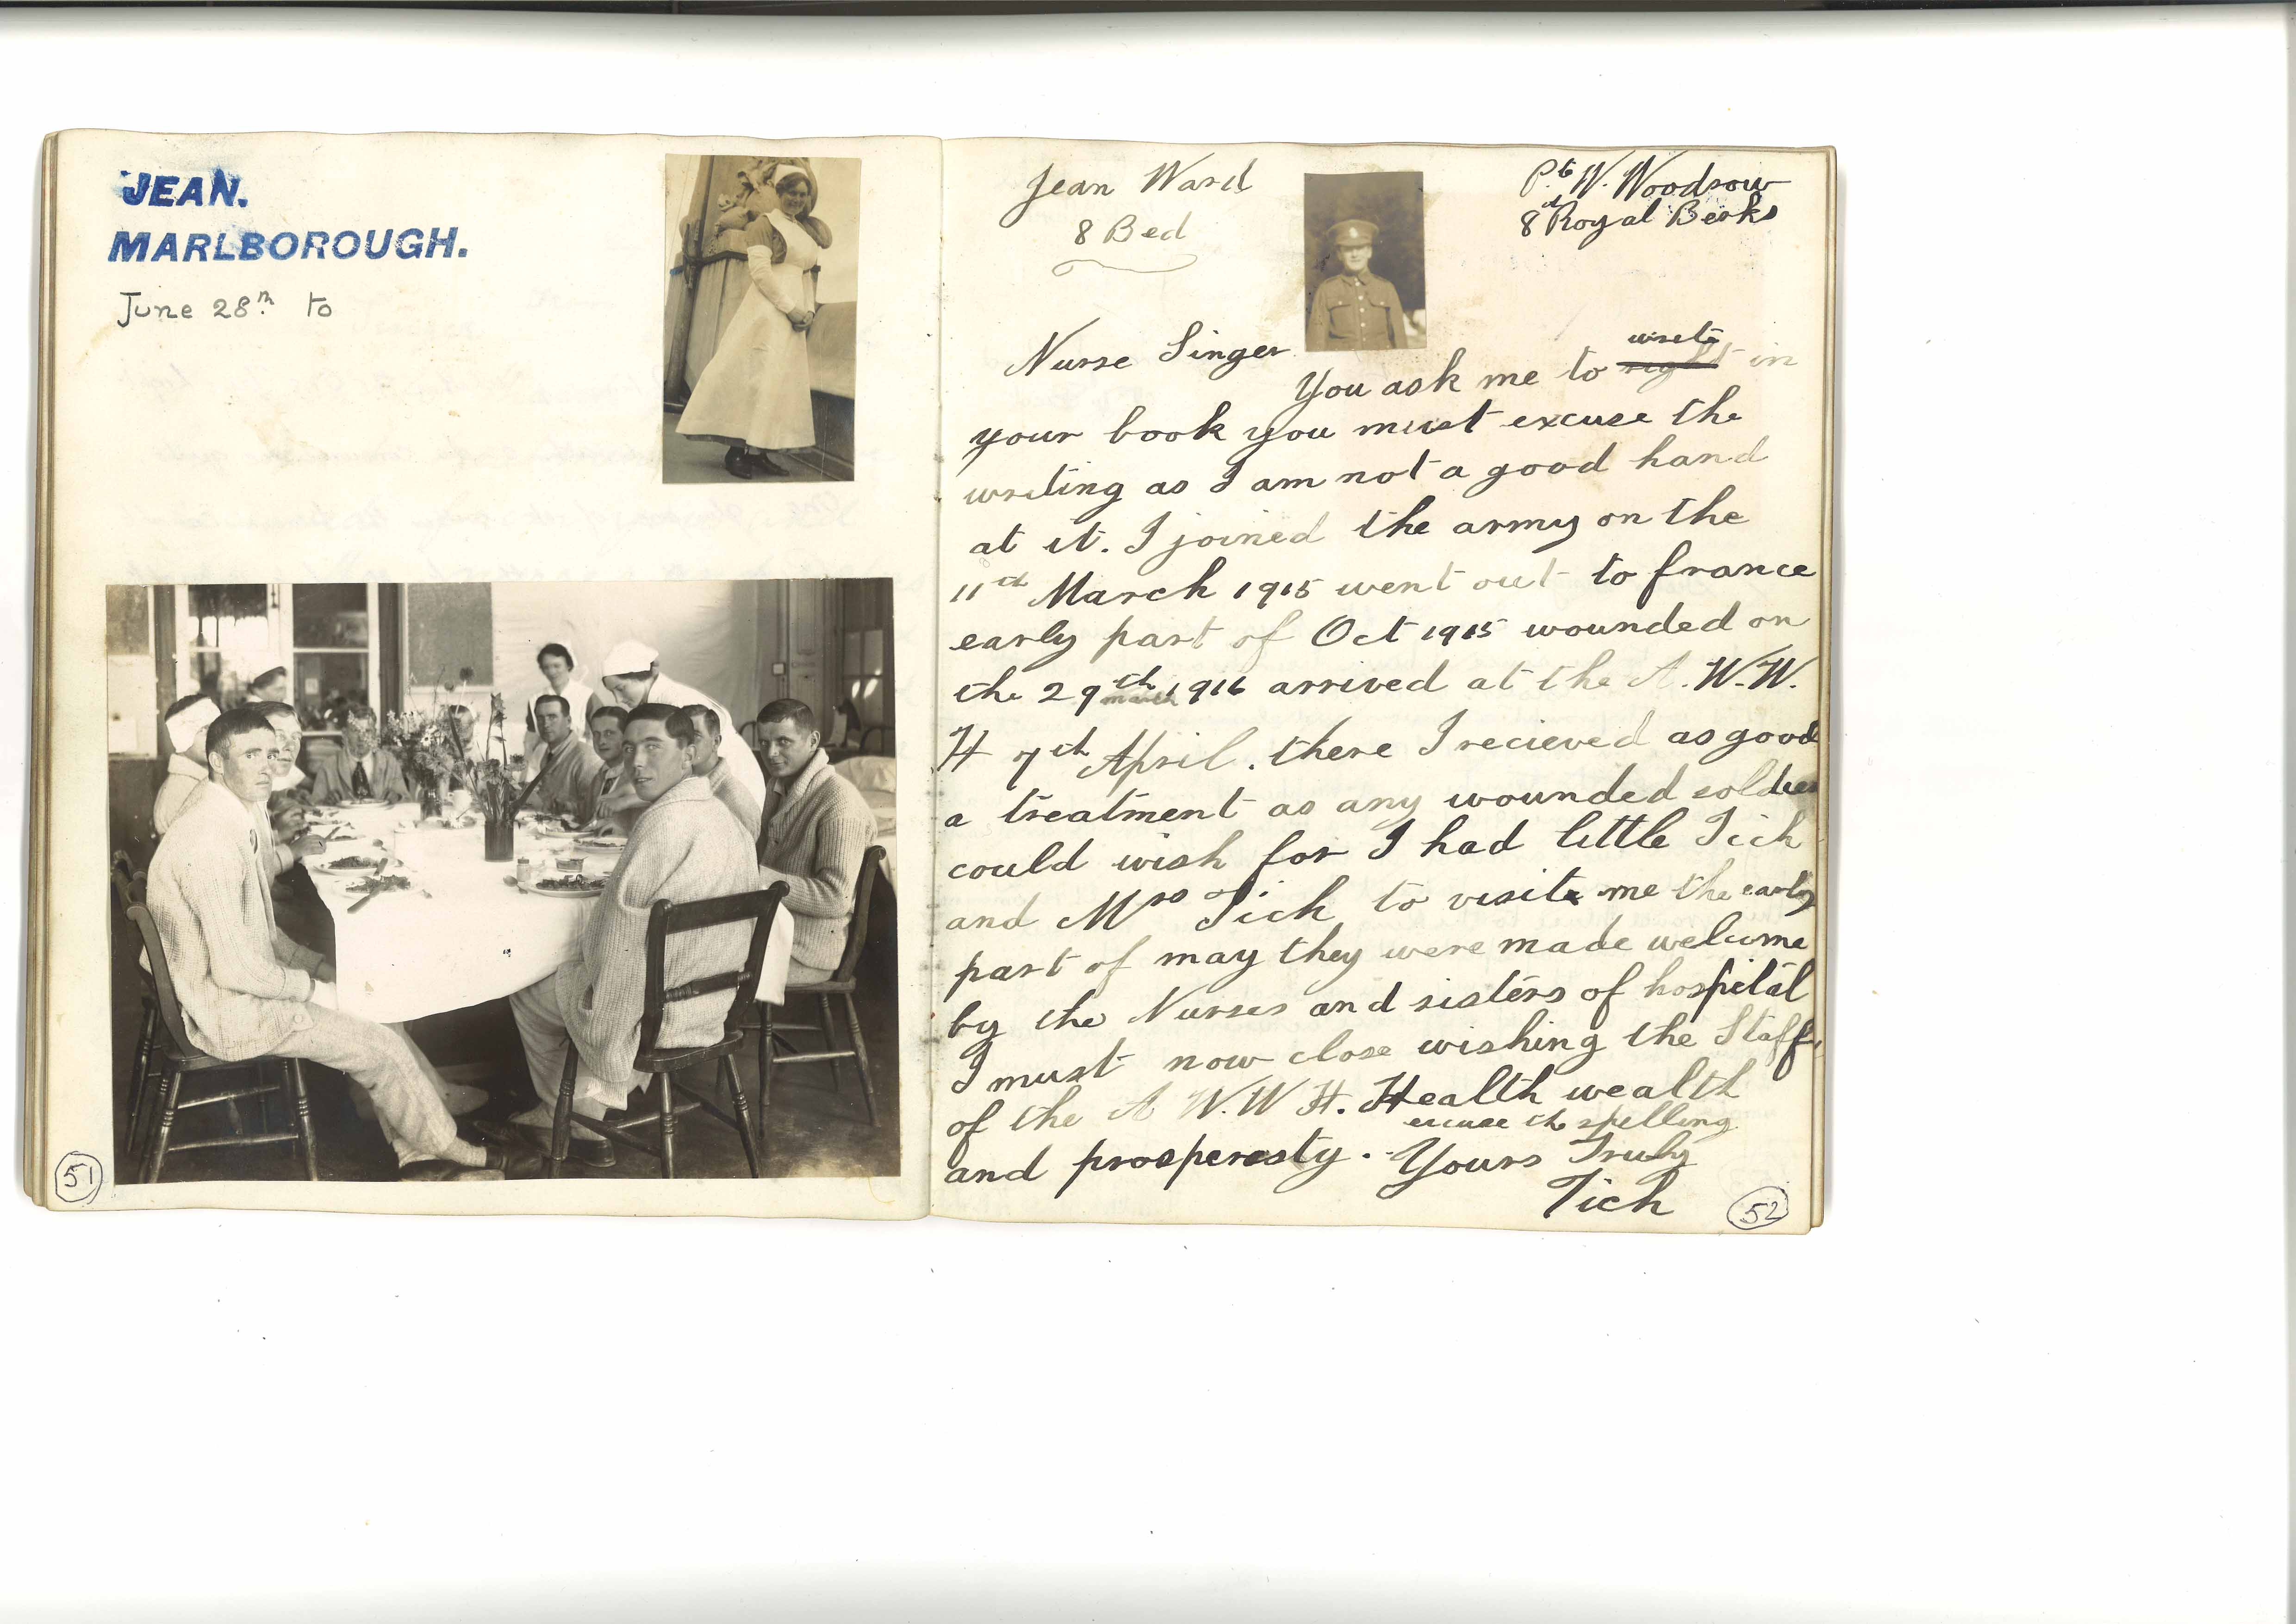 JEAN.
MARLBOROUGH.
June 28th. to
51
Jean Ward
8 Bed
Pt. W. Woodrow
8th Royal Berks
Nurse Singer
You ask me to right write in
your book you must excuse the
writing as I am not a good hand
at it. I joined the army on the
11th March 1915 went out to france
early part of Oct 1915 wounded on
the 29th march 1916 arrived at the A.W.W.
H 7th April. there I recieved as good
a treatment as any wounded soldier
could wish for I had little Tich
and Mrs Tich to visit me the early
part of may they were made welcome
by the Nurses and sisters of hospital
I must now close wishing the Staff
of the A W.W H. Health wealth
excuse the spelling
and prosperesty. Yours Truly
Tich
52